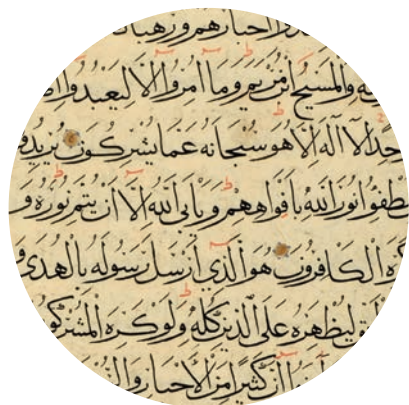 احبارهم ورهبا
والمسيح ابن مريم وما امروا الا ليعبدوا ا
حدا لا اله الا هو سبحانه عما يشركون يريدو
يطفوا نور الله بافواههم ويابى الله الا ان يتم نوره و
ره الكافرون هو الذي ارسل رسوله بالهدى و
ليظهره على الدين كله ولو كره المشركو
ان كثيرا من الاحبار وال